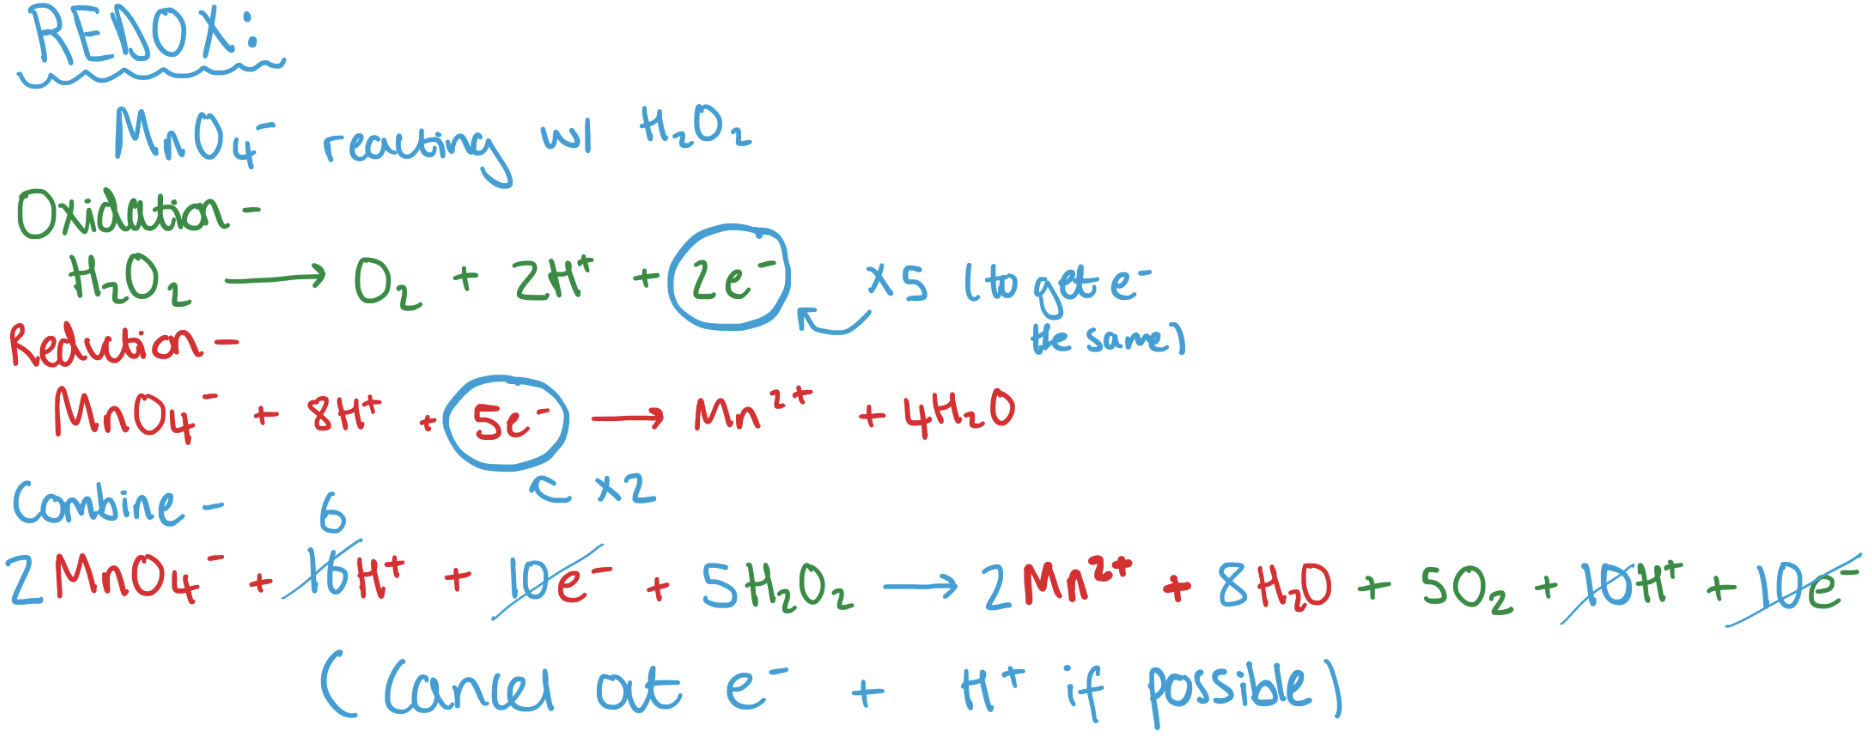 REDOX:
MnO₄⁻ reacting w/ H₂O₂
Oxidation -
H₂O₂ → O₂ + 2H⁺ + 2e⁻ ×5 (to get e⁻
the same)
Reduction -
MnO₄⁻ + 8H⁺ + 5e⁻ → Mn²⁺ + 4H₂O
×2
Combine - 6
2MnO₄⁻ + 16H⁺ + 10e⁻ + 5H₂O₂ → 2Mn²⁺ + 8H₂O + 5O₂ + 10H⁺ + 10e⁻
(Cancel out e⁻ + H⁺ if possible)